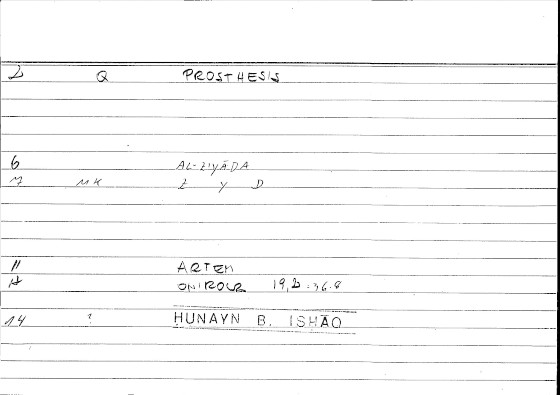 2 Q PROSTHESIS
6 AL-ZIYĀDA
7 MK Z Y D
11 ARTEM
12 ONIROCR 19,
14 ? HUNAYN B. ISHAQ